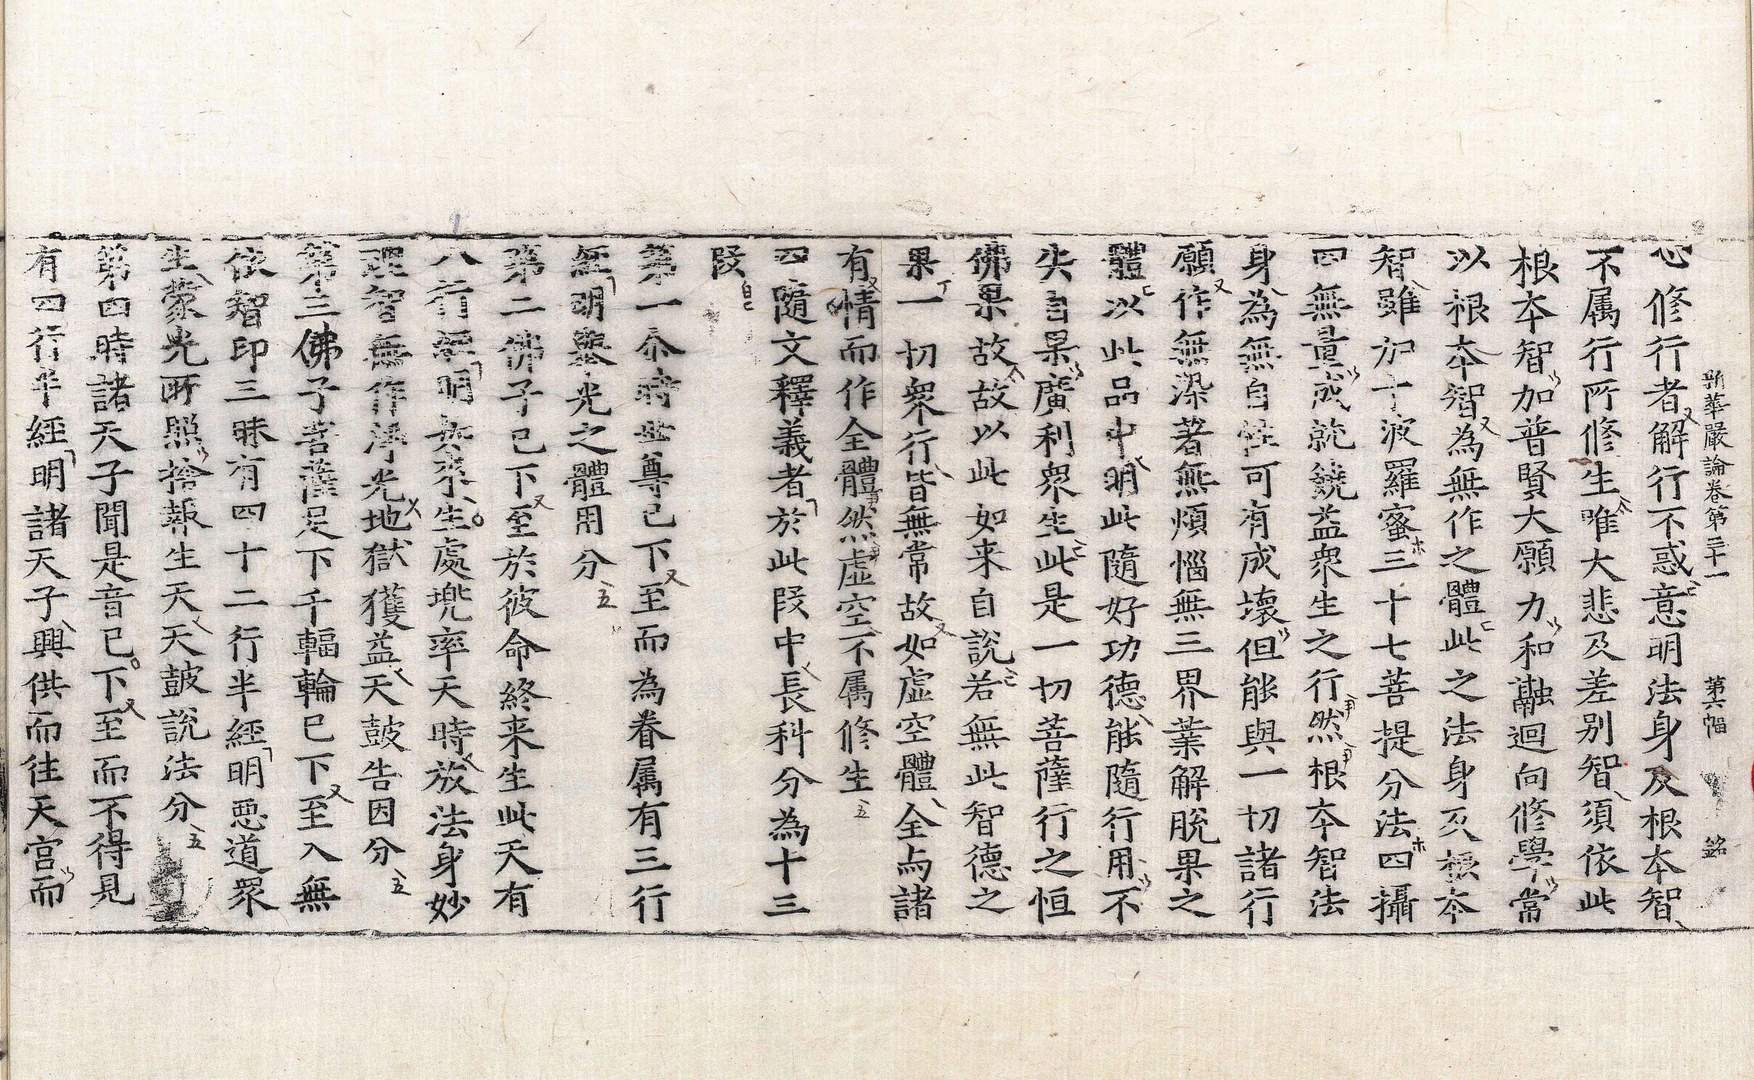 新華嚴論卷第三十一 第六幅 銘
心修行者解行不惑意明法身及根本智
不属行所修生唯大悲及差别智須依此
根本智加普賢大願力和融迴向修學常
以根本智為無作之體此之法身及根本
智雖加十波羅蜜三十七菩提分法四攝
四無量成就饒益衆生之行然根本智法
身為無自性可有成壞但能與一切諸行
願作無染著無煩惱無三界業解脫果之
體以此品中明此隨好功德能隨行用不
失自果廣利衆生此是一切菩薩行之恒
佛果故故以此如来自說若無此智德之
果一切衆行皆無常故如虛空體全与諸
有情而作全體然虛空不属修生
四隨文釋義者於此段中長科分為十三
段
第一尒時世尊已下至而為眷属有三行
經明舉光之體用分
第二佛子已下至於彼命終来生此天有
八行經明夲来生處兠率天時放法身妙
理智無作淨光地獄獲益天鼓告因分
第三佛子菩薩足下千輻輪已下至入無
依智印三昧有四十二行半經明惡道眾
生蒙光所照捨報生天天鼓說法分
第四時諸天子聞是音已下至而不得見
有四行半經明諸天子興供而往天宮而